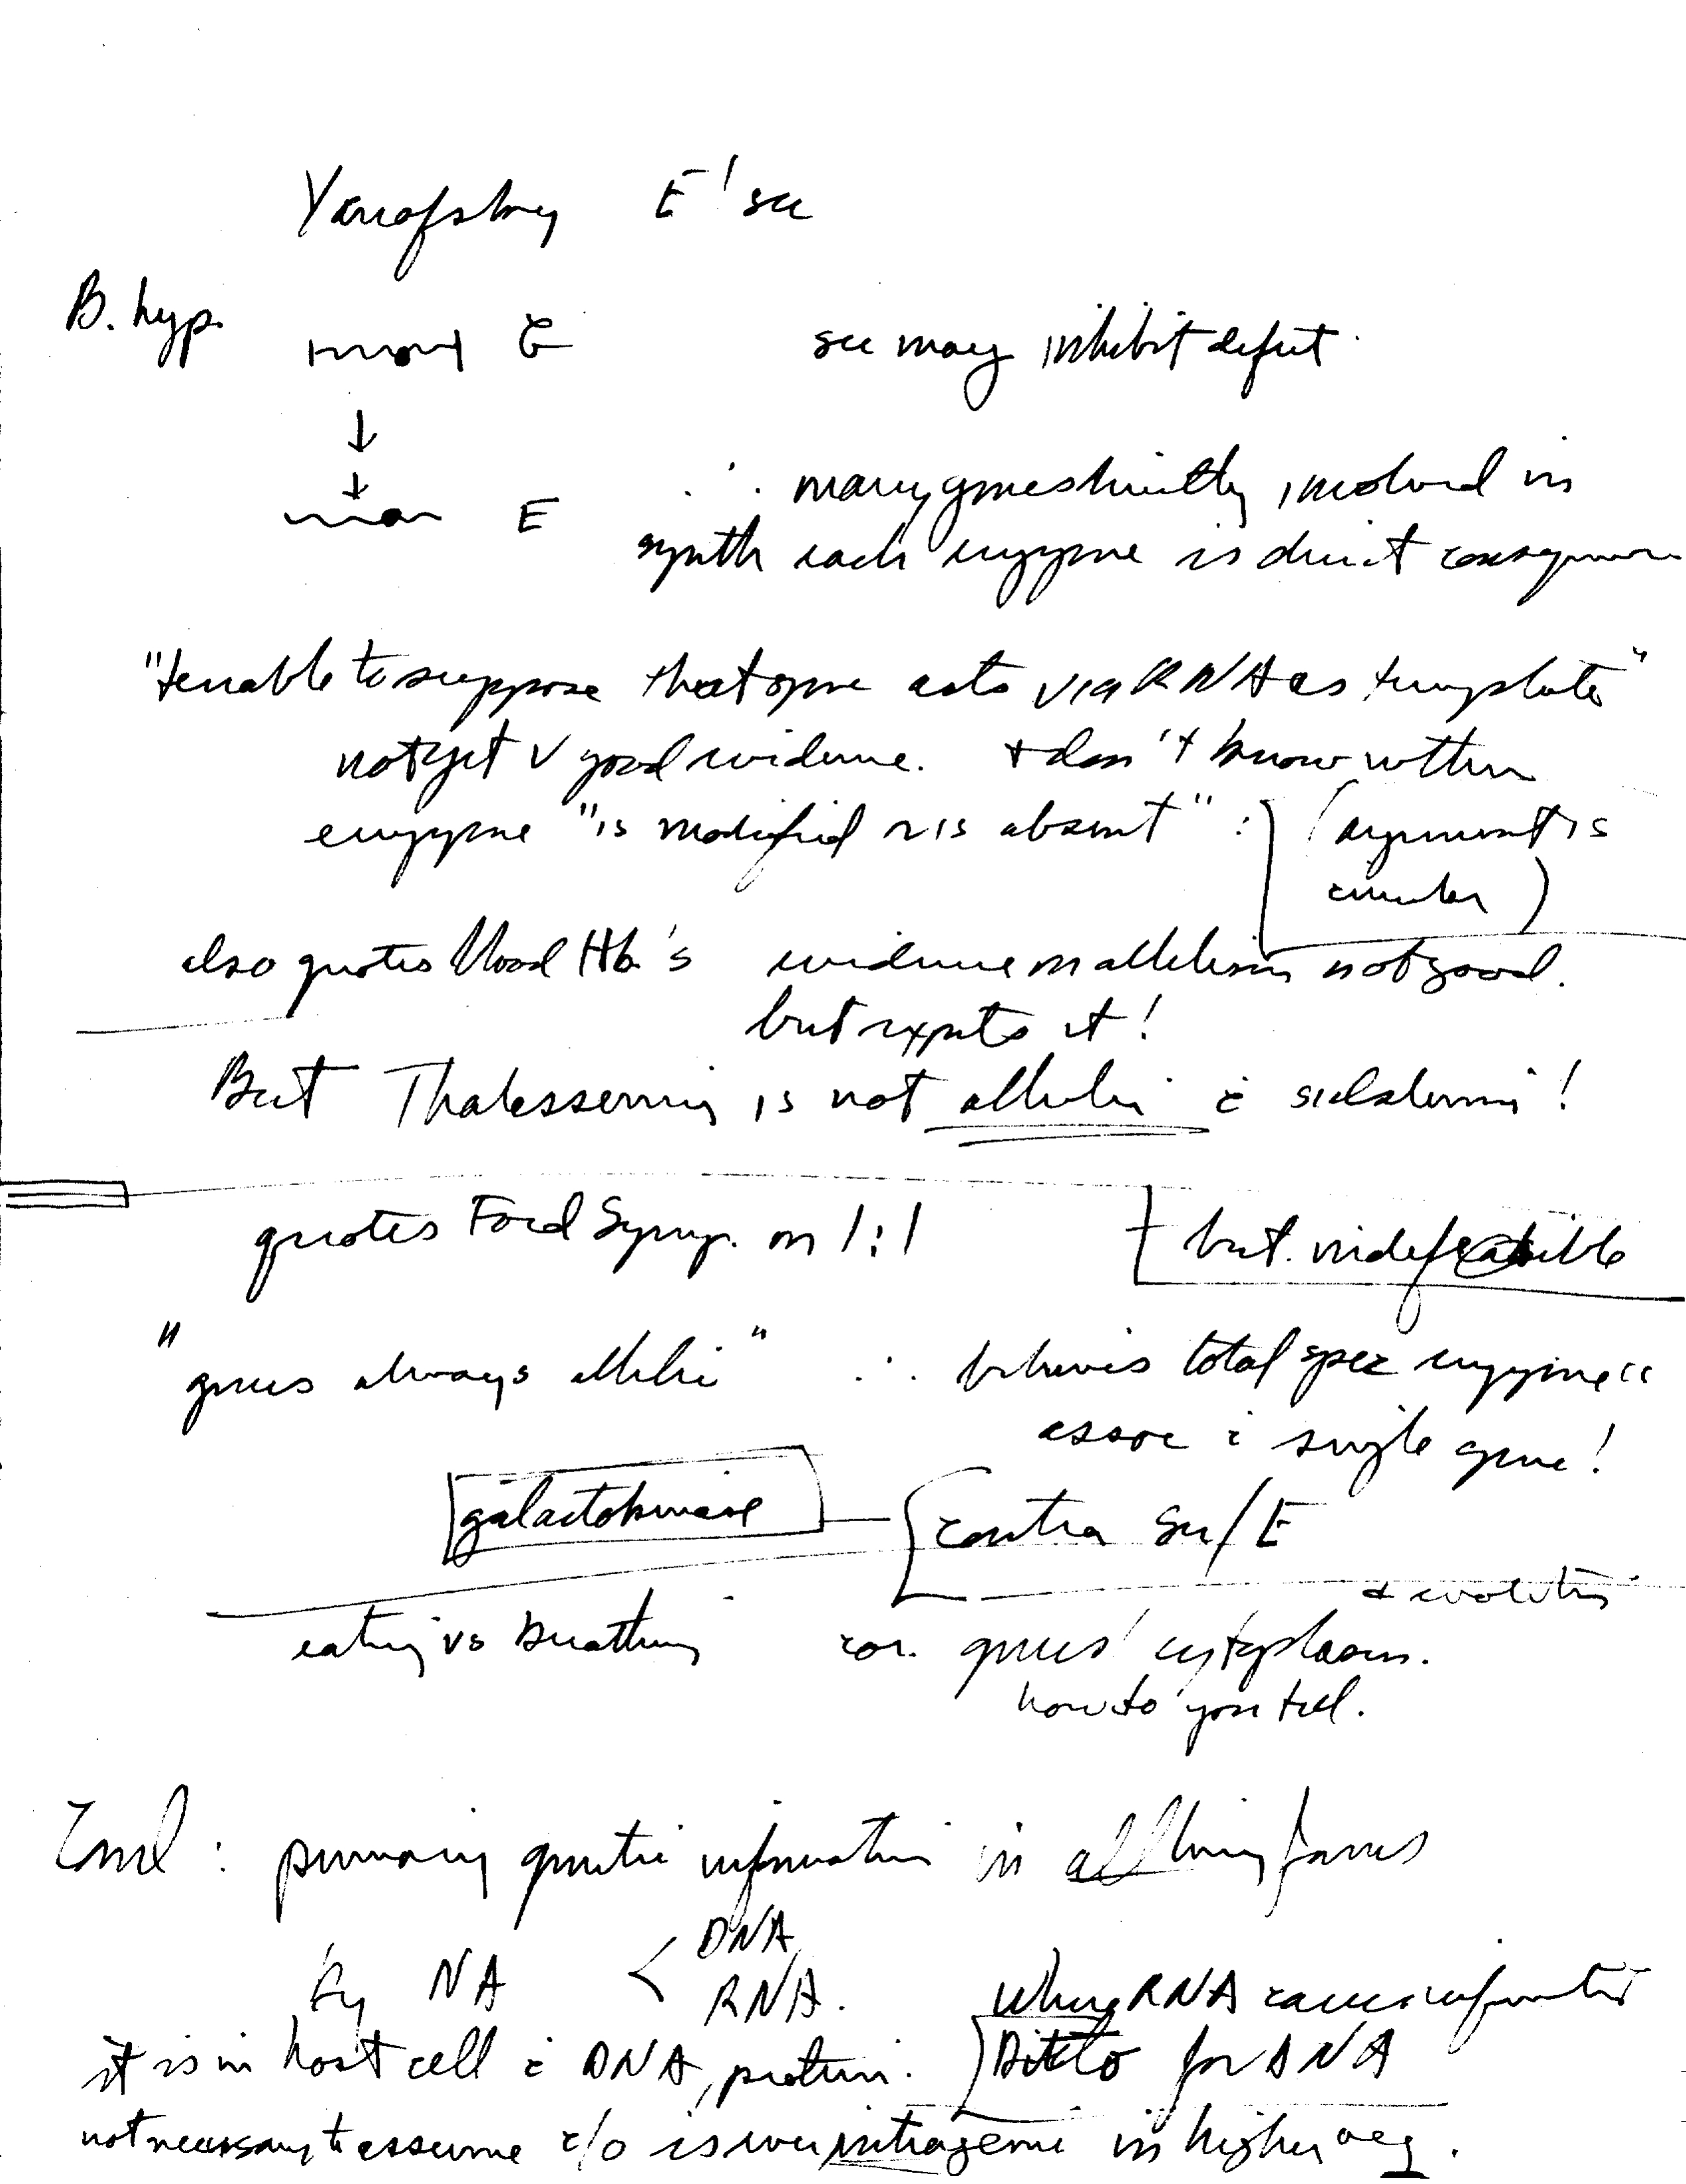 Yanofsky E' su
B. hyp.
su may inhibit defect.
∴ many genes directly involved in
E
synth each enzyme is direct consequence
"tenable to suppose that gene acts via RNA as template"
not yet v good evidence. + don't know whether
enzyme "is modified or is absent" : (argument is
circular)
also quotes blood Hb's evidence on allelism not good.
but expects it!
But Thalassemia is not allelic c̄ sicklemia!
quotes Ford Symp. on 1:1 but indefeasible
"genes always allelic" ∴ believes total spec enzyme is
assoc c̄ single gene!
galactokinase contra Su/E
+ evolution
eating vs breathing cor. genes' cytoplasm.
how do you tell.
Concl : primary genetic information in all living forms
by NA < DNA
RNA. Where RNA carries information
it is in host cell c̄ DNA, protein. Ditto for DNA
not necessary to assume c/o is ever intragenic in higher org.